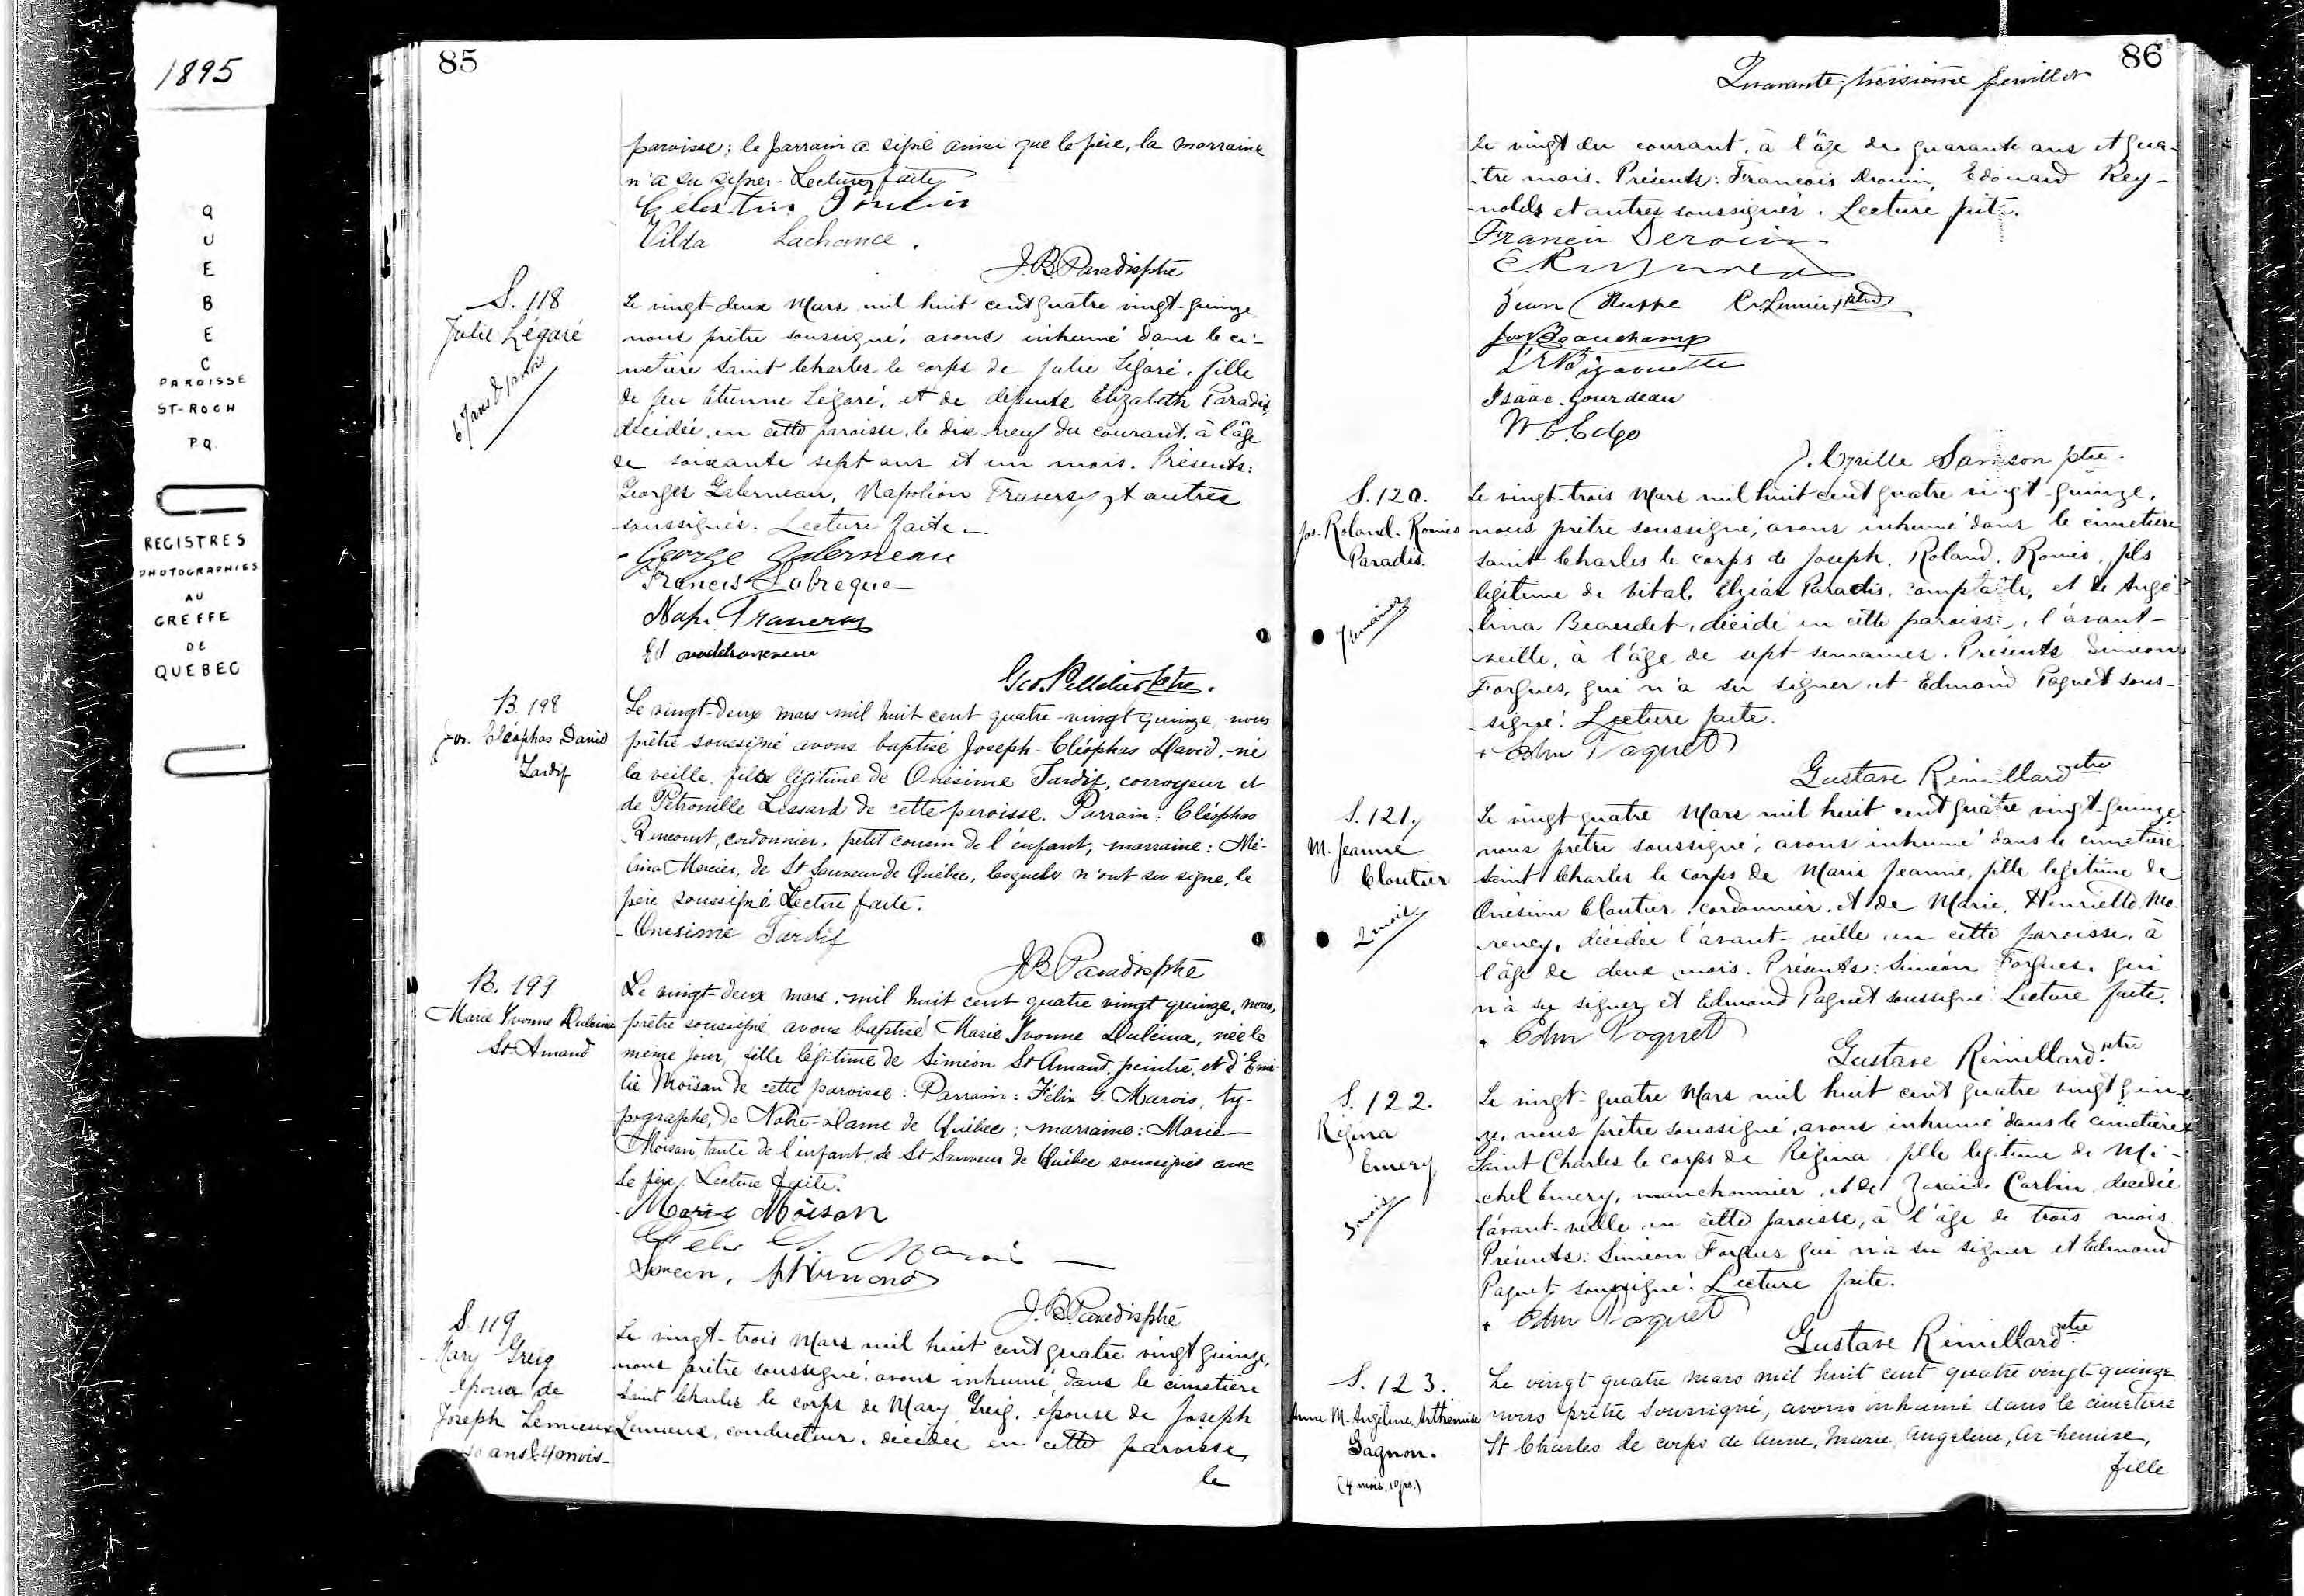 1895
QUEBEC
PAROISSE
ST-ROCH
P.Q.
REGISTRES
PHOTOGRAPHIES
AU
GREFFE
DE
QUEBEC
85
paroisse; le parrain a signé ainsi que le père, la marraine
n'a su signer. Lecture faite
Célestin Poulin
Vilda Lachance.
J.B. Paradis ptre
S. 118
Julie Légaré
67 ans &
Le vingt-deux Mars mil huit cent quatre vingt-quinze
nous prêtre soussigné, avons inhumé dans le ci-
metière Saint Charles le corps de Julie Légaré, fille
de feu Etienne Légaré, et de défunte Elizabeth Paradis,
décédée en cette paroisse, le dix neuf du courant, à l'âge
de soixante sept ans et un mois. Présents:
Georges Galerneau, Napoléon Travers, et autres
soussignés. Lecture faite.
George Galerneau
Francis Labreque
Nap.
Ed
Geo. Pelletier Ptre.
B. 198
Jos. Cléophas David
Tardif
Le vingt-deux mars mil huit cent quatre-vingt quinze, nous
prêtre soussigné avons baptisé Joseph-Cléophas David, né
la veille, fils légitime de Onésime Tardif, corroyeur et
de Pétronille Lessard de cette paroisse. Parrain: Cléophas
cordonnier, petit cousin de l'enfant, marraine: Mé-
lina Mercier, de St Sauveur de Québec, lesquels n'ont su signé, le
père soussigné Lecture faite.
Onesime Tardif
J.B. Paradis ptre
B. 199
Marie Yvonne Dulcina
St-Amand
Le vingt-deux mars, mil huit cent quatre vingt quinze, nous,
prêtre soussigné avons baptisé Marie Yvonne Dulcina, née le
même jour, fille légitime de Siméon St Amand, peintre, et d'Emi-
lie Moisan de cette paroisse: Parrain: Félix G. Marois, ty-
pographe, de Notre-Dame de Québec; marraine: Marie
Moisan, tante de l'enfant, de St Sauveur de Québec soussignés avec
le père. Lecture faite.
Marie Moisan
Felix G. Marois
Simeon, St Amand
J.B. Paradis ptre
S. 119
Mary Greig
épouse de
Joseph Lemieux
40 ans & 4 mois
Le vingt-trois Mars mil huit cent quatre vingt quinze,
nous prêtre soussigné, avons inhumé dans le cimetière
Saint Charles le corps de Mary Greig, épouse de Joseph
Lemieux, conducteur, décédée en cette paroisse,
le
86
Quarante-troisième feuillet
le vingt du courant, à l'âge de quarante ans et qua-
tre mois. Présents: François Drouin, Edouard Rey-
nolds et autres soussignés. Lecture faite.
Francis Derouin
Jean Huppe
Jos Beauchamp
Isaac Gourdeau
W. E. Edge
J. Cyrille Samson ptre.
S. 120.
Jos. Roland. Roméo
Paradis.
7 semaines
Le vingt-trois Mars mil huit cent quatre vingt-quinze,
nous prêtre soussigné, avons inhumé dans le cimetière
Saint Charles le corps de Joseph, Roland, Roméo, fils
légitime de Vital, Elzéar Paradis, comptable, et de Angé-
lina Beaudet, décédé en cette paroisse, l'avant-
veille, à l'âge de sept semaines. Présents Siméon
Forgues, qui n'a su signer et Edmond Paquet sous-
signé. Lecture faite.
+ Edm Paquet
Gustave Rémillard ptre
S. 121.
M. Jeanne
Cloutier
2 mois
Le vingt quatre Mars mil huit cent quatre vingt-quinze
nous prêtre soussigné, avons inhumé dans le cimetière
Saint Charles le corps de Marie Jeanne, fille légitime de
Onésime Cloutier, cordonnier, et de Marie, Henriette Mo-
rency, décédée l'avant-veille en cette paroisse, à
l'âge de deux mois. Présents: Siméon Forgues, qui
n'a su signer et Edmond Paquet soussigné Lecture faite.
+ Edm Paquet
Gustave Rémillard ptre
S. 122.
Régina
Emery
3 mois
Le vingt-quatre Mars mil huit cent quatre vingt quin-
ze, nous prêtre soussigné, avons inhumé dans le cimetière
Saint Charles le corps de Régina fille légitime de Mi-
chel Emery, manchonnier, et de Zoraïde Corbin, décédée
l'avant-veille en cette paroisse, à l'âge de trois mois.
Présents: Siméon Forgues qui n'a su signer et Edmond
Paquet soussigné. Lecture faite.
+ Edm Paquet
Gustave Rémillard ptre
S. 123.
Anne M. Angéline Arthémise
Gagnon.
(4 mois, 10 jrs.)
Le vingt-quatre mars mil huit cent quatre vingt-quinze
nous prêtre soussigné, avons inhumé dans le cimetière
St Charles le corps de Anne, Marie, Angéline, Arthémise,
fille